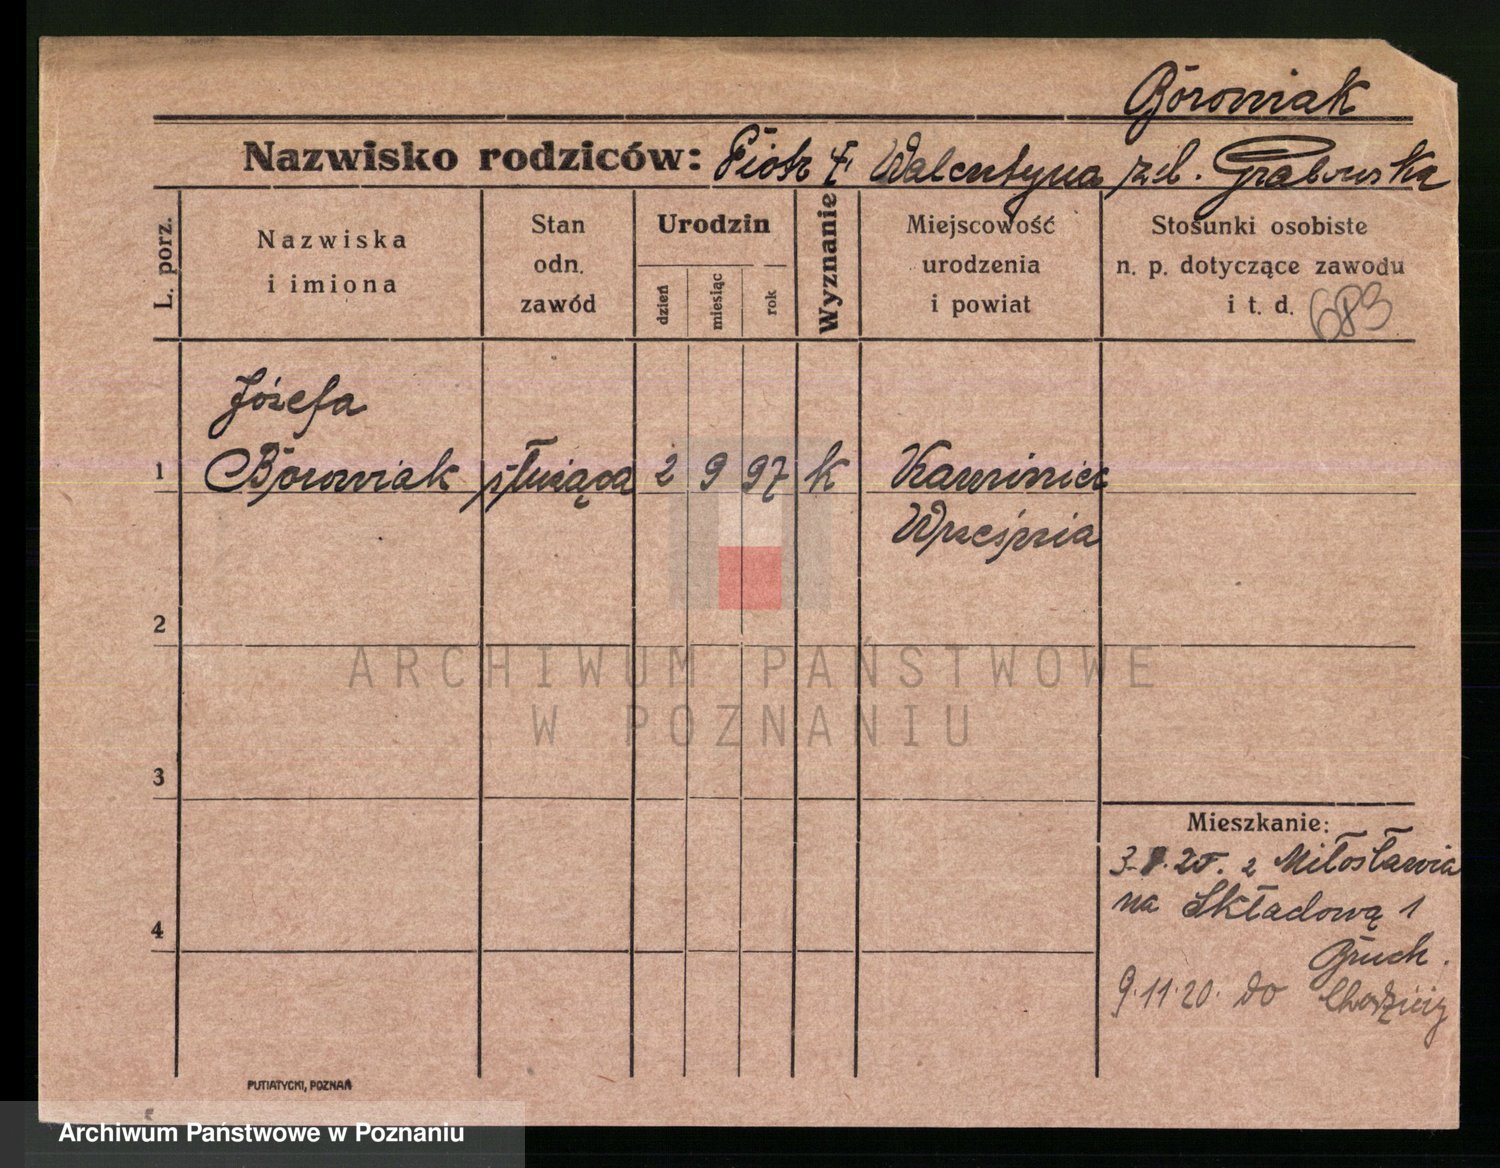 Borowiak
Nazwisko rodziców: Piotr † Walentyna zd. Grabowska
L. porz.
Nazwiska
i imiona
Stan
odn.
zawód
Urodzin
dzień
miesiąc
rok
Wyznanie
Miejscowość
urodzenia
i powiat
Stosunki osobiste
n. p. dotyczące zawodu
i t. d. 683
Józefa
1 Borowiak służąca 2 9 97 k Kawiniec
Września
2
3
4
Mieszkanie:
20. z Miłosławia
na Składową 1
9.11.20. do Chodzieży
PUTIATYCKI, POZNAŃ
ARCHIWUM PAŃSTWOWE
W POZNANIU
Archiwum Państwowe w Poznaniu